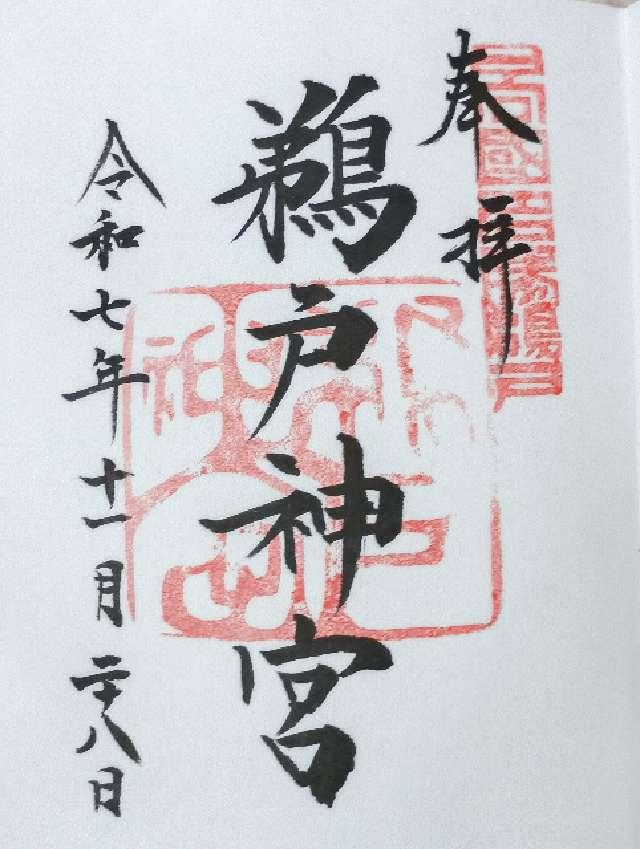 奉拝
鵜戸神宮
令和七年十一月二十八日